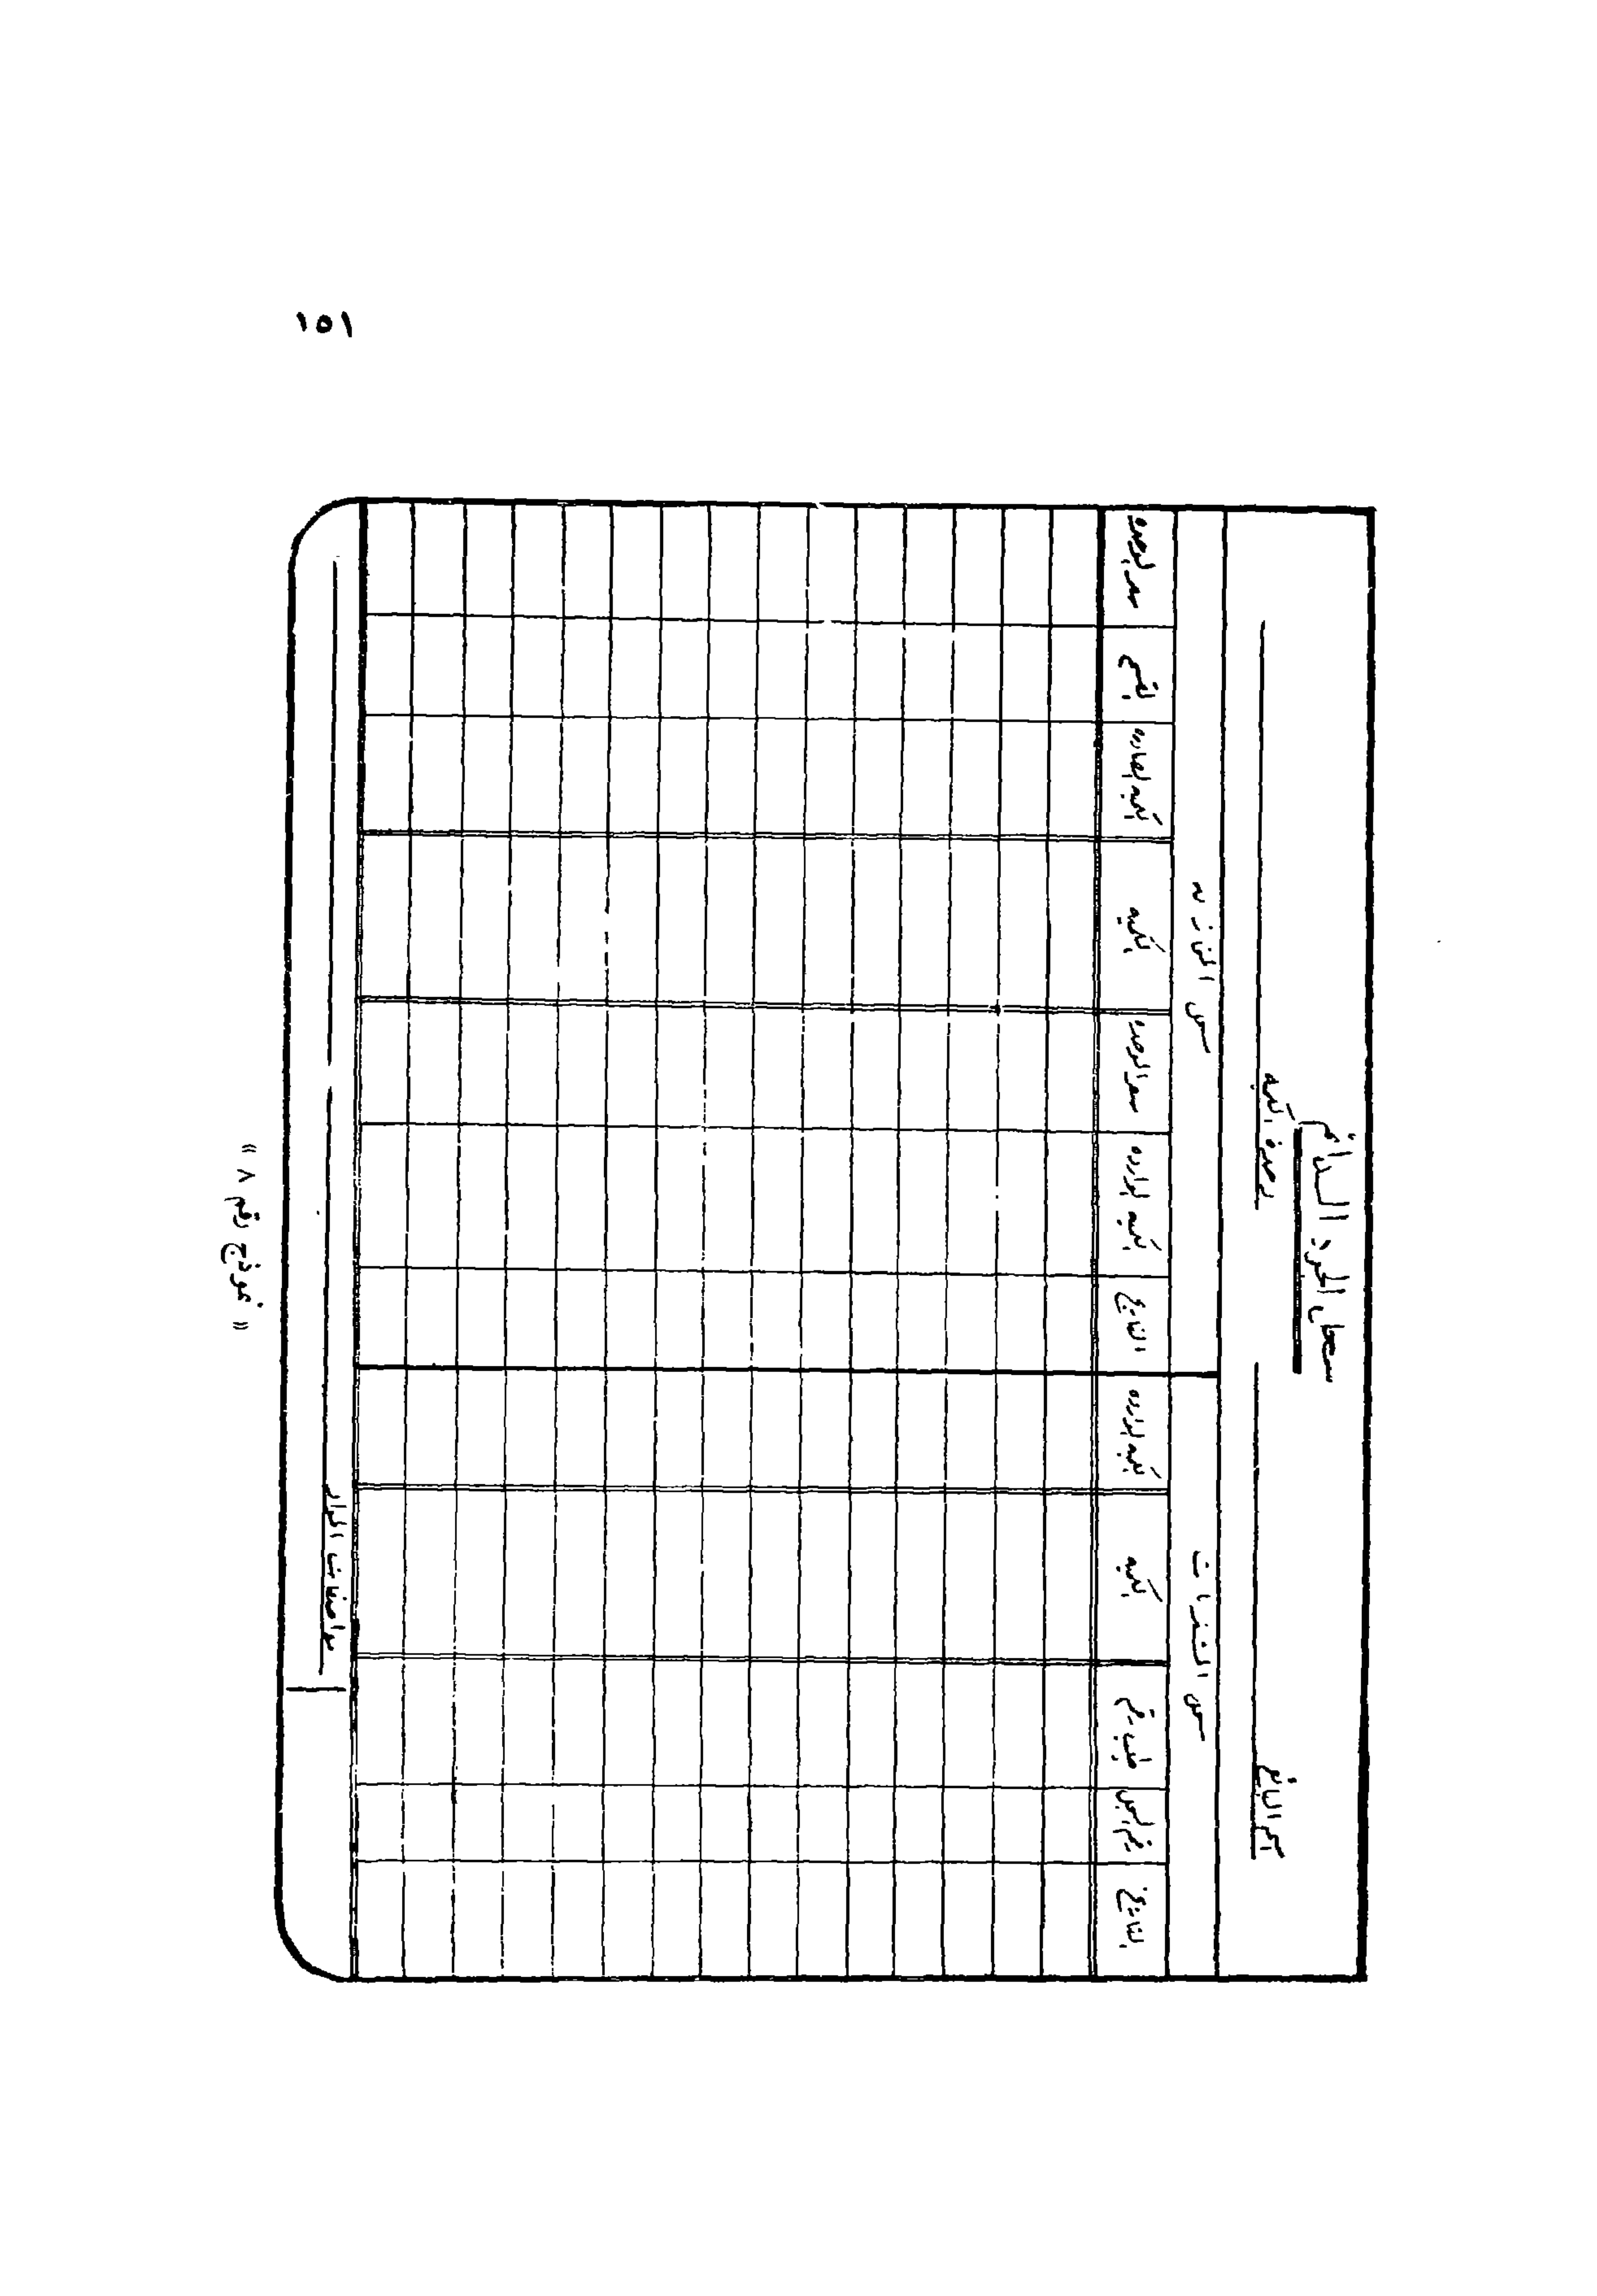 ١٥١
سجل الجرد الدائم
اسم البائع
وحدة الكمية
سجل المشتريات
سجل الخزانة
التاريخ
رقم السجل
طلب رقم
الكمية
الكمية الواردة
التاريخ
الكمية الواردة
سعر الوحدة
الكمية
الكمية الصادرة
القسم
سعر الوحدة
مواصفات المواد
« نموذج رقم ٨ »